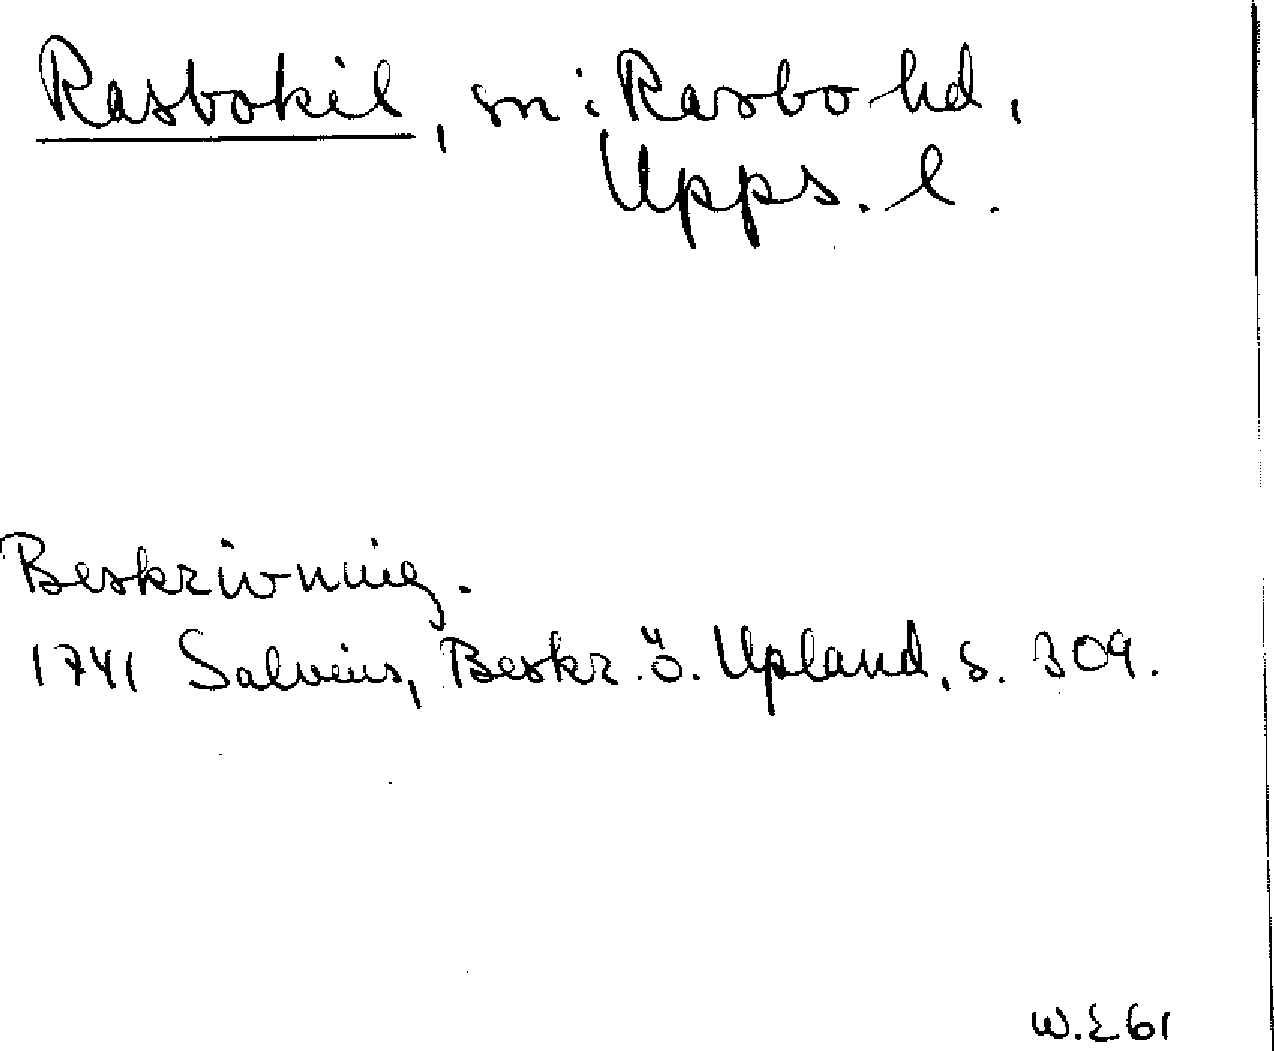 Rasbokil, sn i Rasbo hd,
Upps. l.
Beskrivning.
1741 Salvius, Beskr. ö. Upland, s. 309.
W.E 61